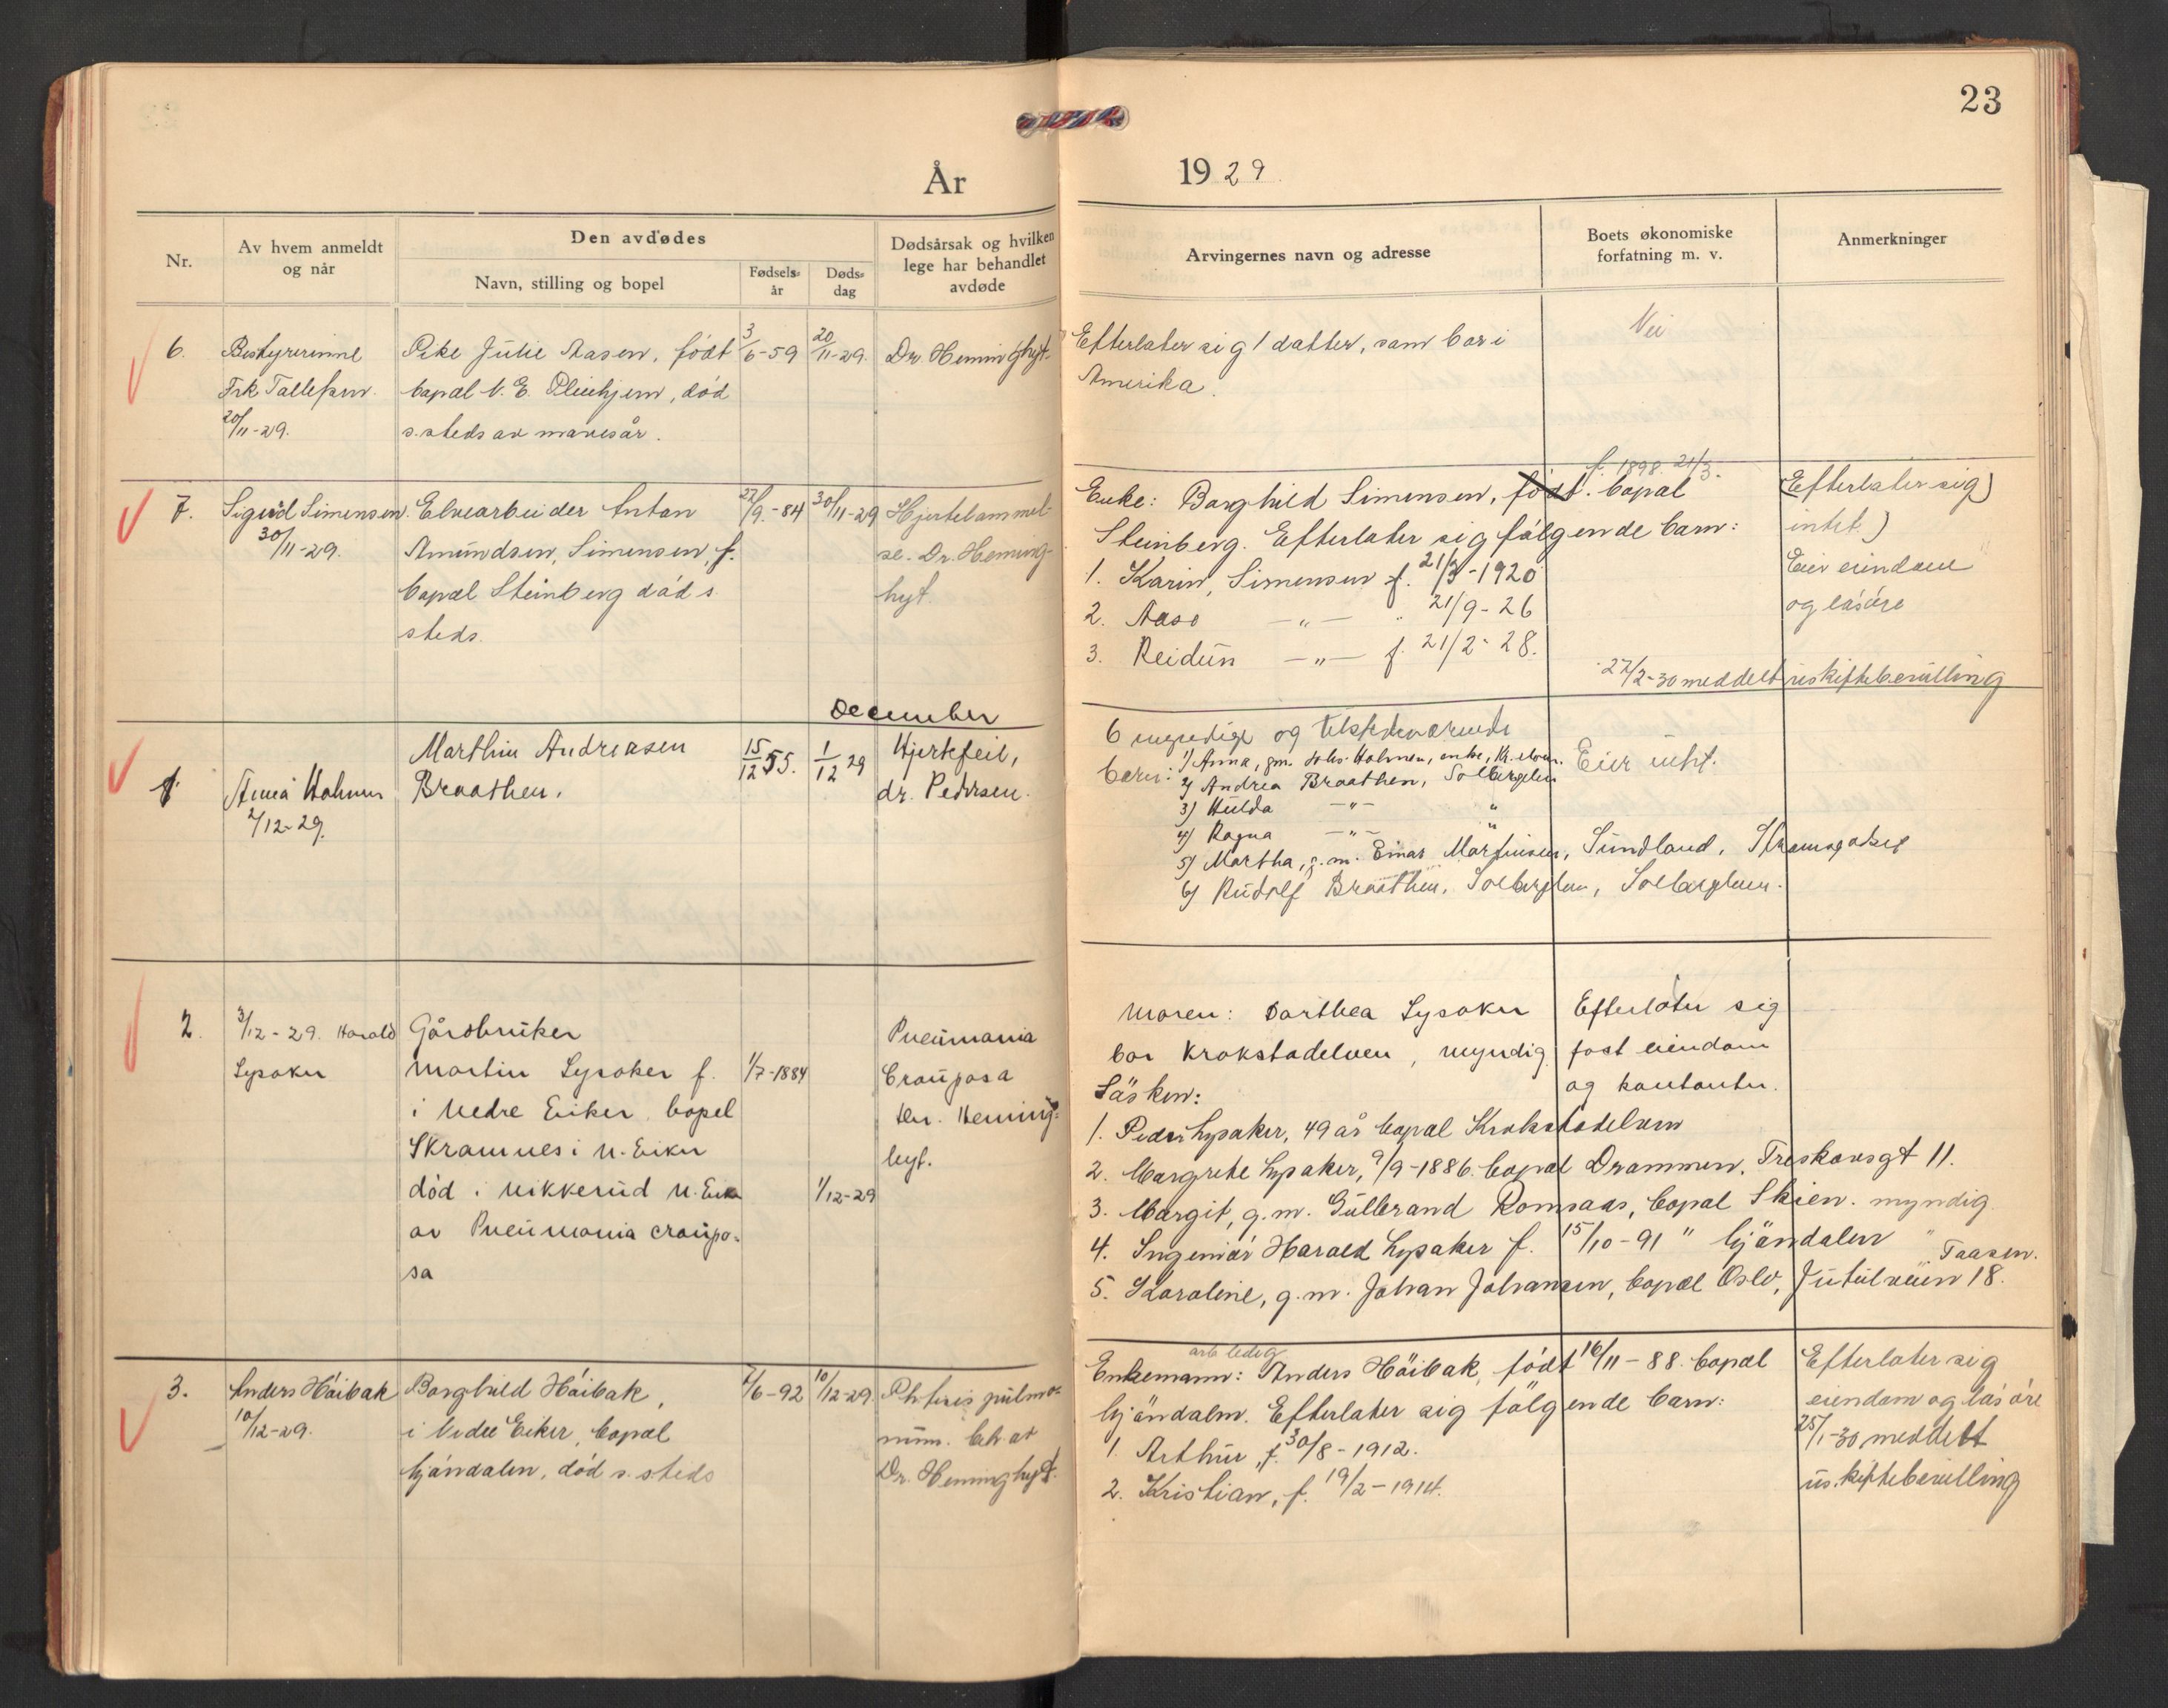 23
År 1929.
Nr.
Av hvem anmeldt
og når
Den avdødes
Navn, stilling og bopel
Fødsels-
år
Døds-
dag
Dødsårsak og hvilken
lege har behandlet
avdøde
Arvingernes navn og adresse
Boets økonomiske
forfatning m. v.
Anmerkninger
6.
Bestyrerinne
Frk Tollefsen.
20/11-29.
Pike Julie Aasen, født
bopæl N. E. Pleiehjem, død
s. steds av mavesår.
3/6-59
20/11-29.
Dr. Heminghyt.
Efterlater sig 1 datter, som bor i
Amerika.
Nei
7.
Sigurd Simensen.
30/11-29.
Elvearbeider Anton
Amundsen, Simensen, f.
bopæl Steinberg død s.
steds.
27/9.-84
30/11-29
Hjertelammel-
se. Dr. Heming-
hyt.
f. 1898. 21/3.
Enke: Borghild Simensen, født. bopæl
Steinberg. Efterlater sig følgende barn:
1. Karin, Simensen f. 21/3-1920
2. Aase -"- " 21/9-26
3. Reidun -"- f. 21/2-28.
(Efterlater sig)
intet)
Eier eiendom
og løsøre
27/2-30 meddelt uskiftebevilling
December
1.
Anna Holmen
2/12-29.
Marthin Andreasen
Braathen.
15/12 55.
1/12 29
Hjertefeil,
dr. Pedersen.
6 myndige og tilstedeværende
barn: 1) Anna, gm. Johs. Holmen, enke, Kr.elven.
2) Andrea Braathen, Solbergelven
3) Hulda -"- "
4) Ragna -"- "
5) Martha, g. m. Einar Martinsen, Sundland, Strømsgodset
6) Rudolf Braathen, Solbergelven, Solbergelven.
Eier intet.
2.
3/12-29. Harald
Lysaker
Gårdbruker
Martin Lysaker f.
i Nedre Eiker, bopel
Skramnes i N. Eiker
død i Mikkerud N. Eiker
av Pneumonia croupo-
sa
1/7-1884
1/12-29
Pneumonia
Crouposa
Dr. Heming-
hyt.
Moren: Dorthea Lysaker
bor Krokstadelven, myndig
Søsken:
1. Peder Lysaker, 49 år bopæl Krokstadelven
2. Margrete Lysaker, 9/9-1886. bopæl Drammen, Treskowsgt 11.
3. Margit, g. m. Gulbrand Romsaas, bopæl Skien. myndig
4. Ingeniør Harald Lysaker f. 15/10-91 " Mjøndalen "
Taasen.
5. Karoline, g. m. Johan Johansen, bopæl Oslo, Jutulveien 18.
Efterlater sig
fast eiendom
og kontanter.
3.
Anders Höibak
10/12-29.
Borghild Höibak,
i Nedre Eiker, bopæl
Mjöndalen, död s. steds
7/6-92
10/12-29.
Phtisis pulmo-
num. beh. av
Dr. Heminghyt.
arb. ledig
Enkemann: Anders Höibak, født 16/11-88. bopæl
Mjöndalen. Efterlater sig følgende barn:
1. Arthur, f. 30/8-1912.
2. Kristian, f. 19/2-1914.
Efterlater sig
eiendom og løsøre
25/1-30 meddelt
uskiftebevilling